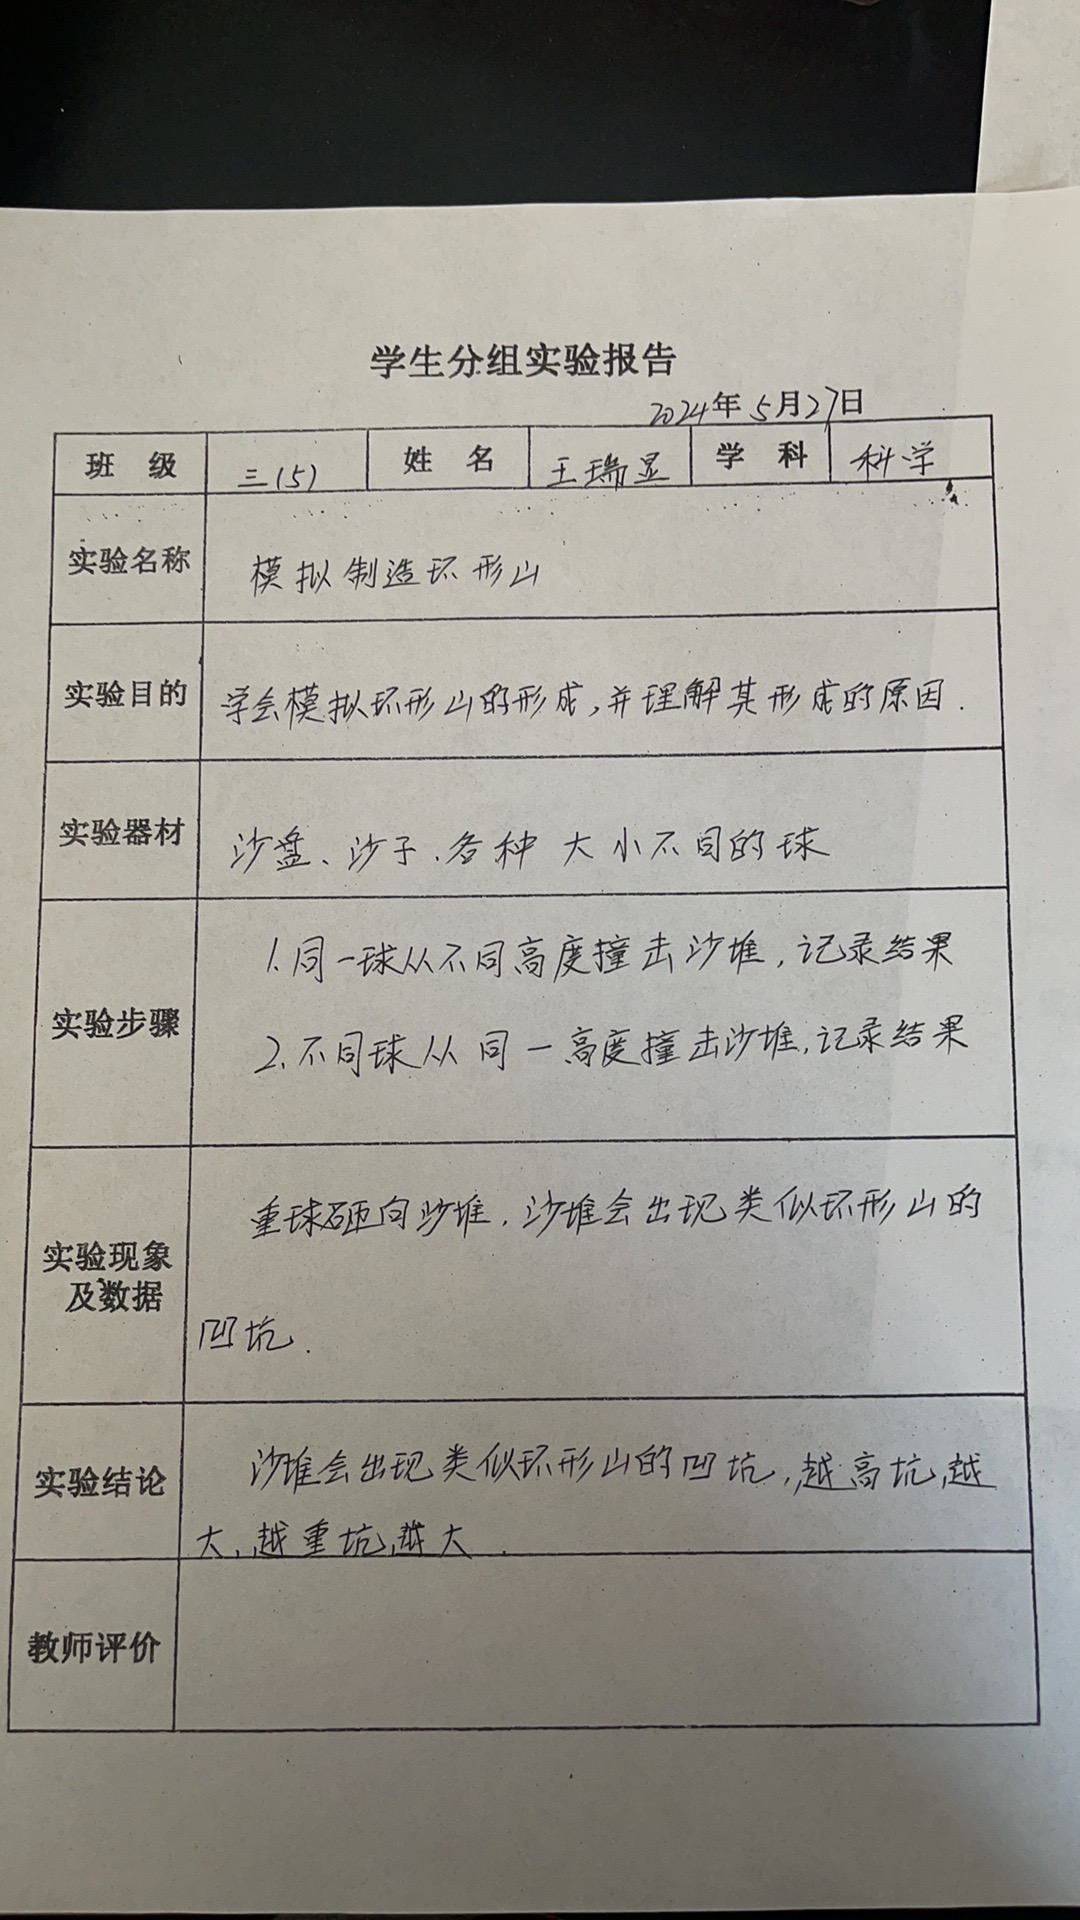 学生分组实验报告
2024年5月27日
班 级 三(5) 姓 名 王瑞显 学 科 科学
实验名称 模拟制造环形山
实验目的 学会模拟环形山的形成,并理解其形成的原因.
实验器材 沙盘、沙子、各种大小不同的球
实验步骤 1.同一球从不同高度撞击沙堆,记录结果
2.不同球从同一高度撞击沙堆,记录结果
实验现象 重球砸向沙堆,沙堆会出现类似环形山的
及数据 凹坑.
实验结论 沙堆会出现类似环形山的凹坑,越高坑越
大,越重坑越大.
教师评价